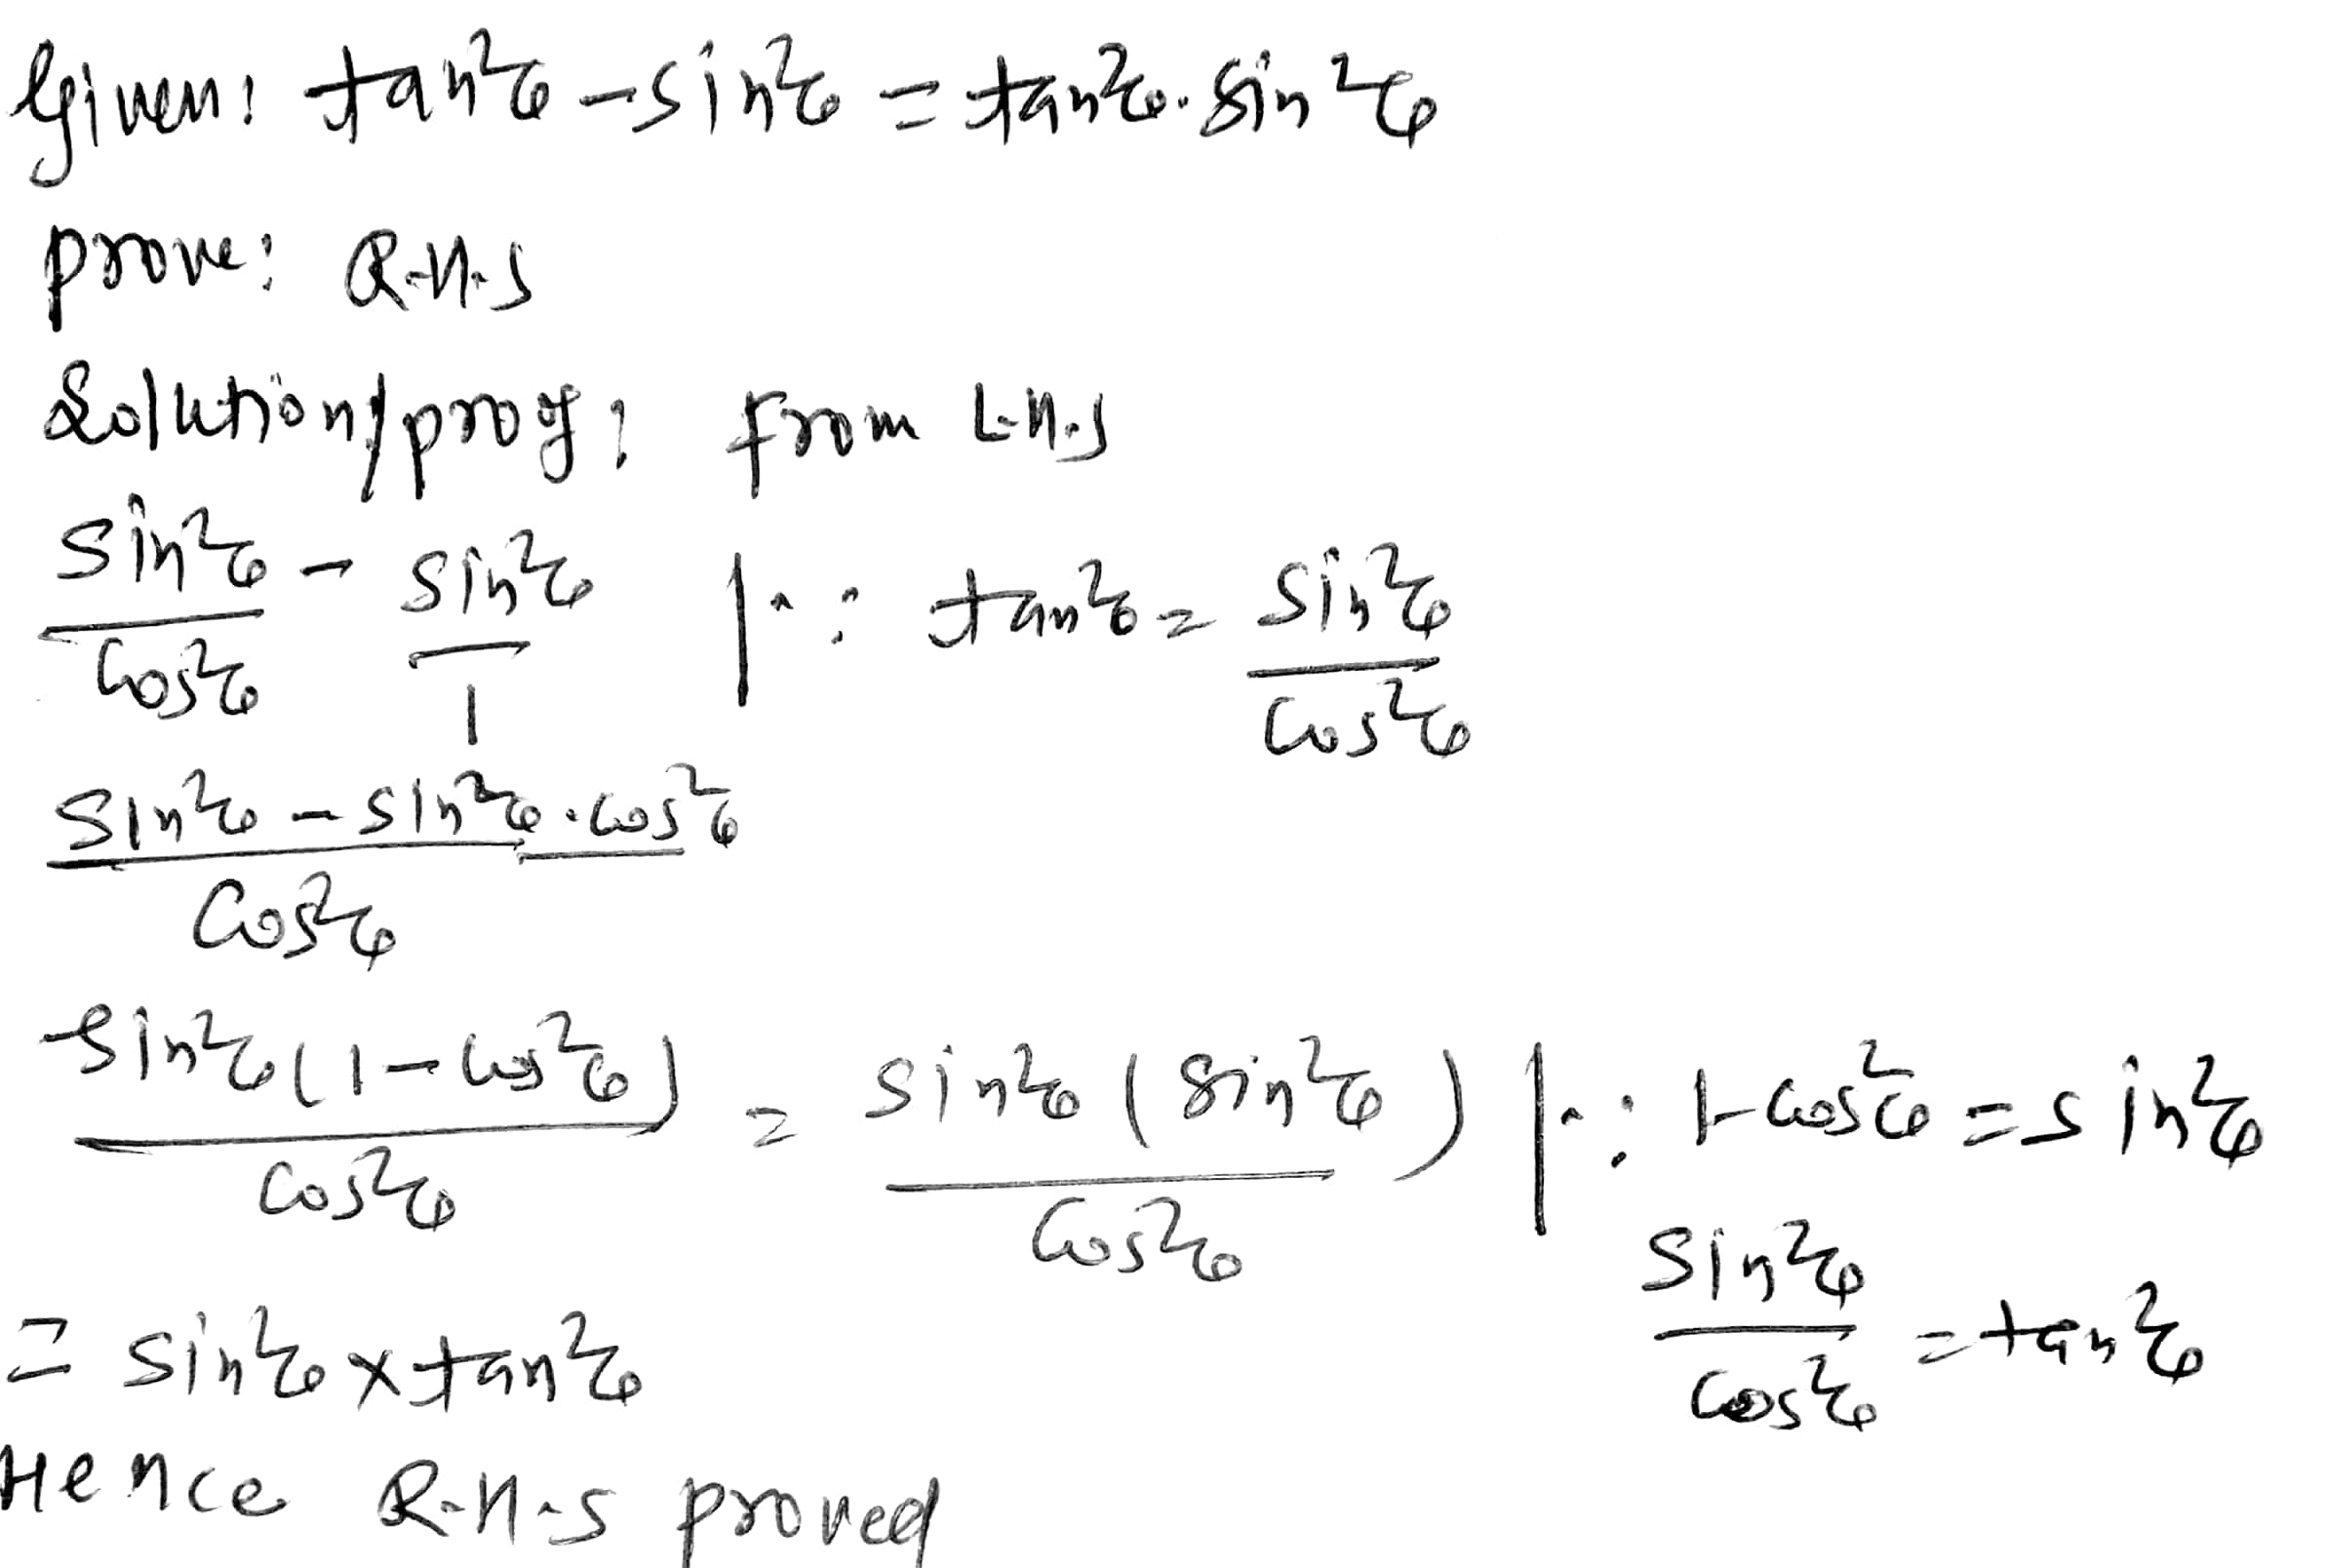 Given: tan²θ - sin²θ = tan²θ . sin²θ
prove: R.H.S
Solution/proof: from L.H.S
sin²θ/cos²θ - sin²θ/1 | ∵ tan²θ = sin²θ/cos²θ
sin²θ - sin²θ . cos²θ / cos²θ
sin²θ(1 - cos²θ)/cos²θ = sin²θ(sin²θ)/cos²θ | ∵ 1-cos²θ = sin²θ
sin²θ/cos²θ = tan²θ
= sin²θ × tan²θ
Hence R.H.S proved